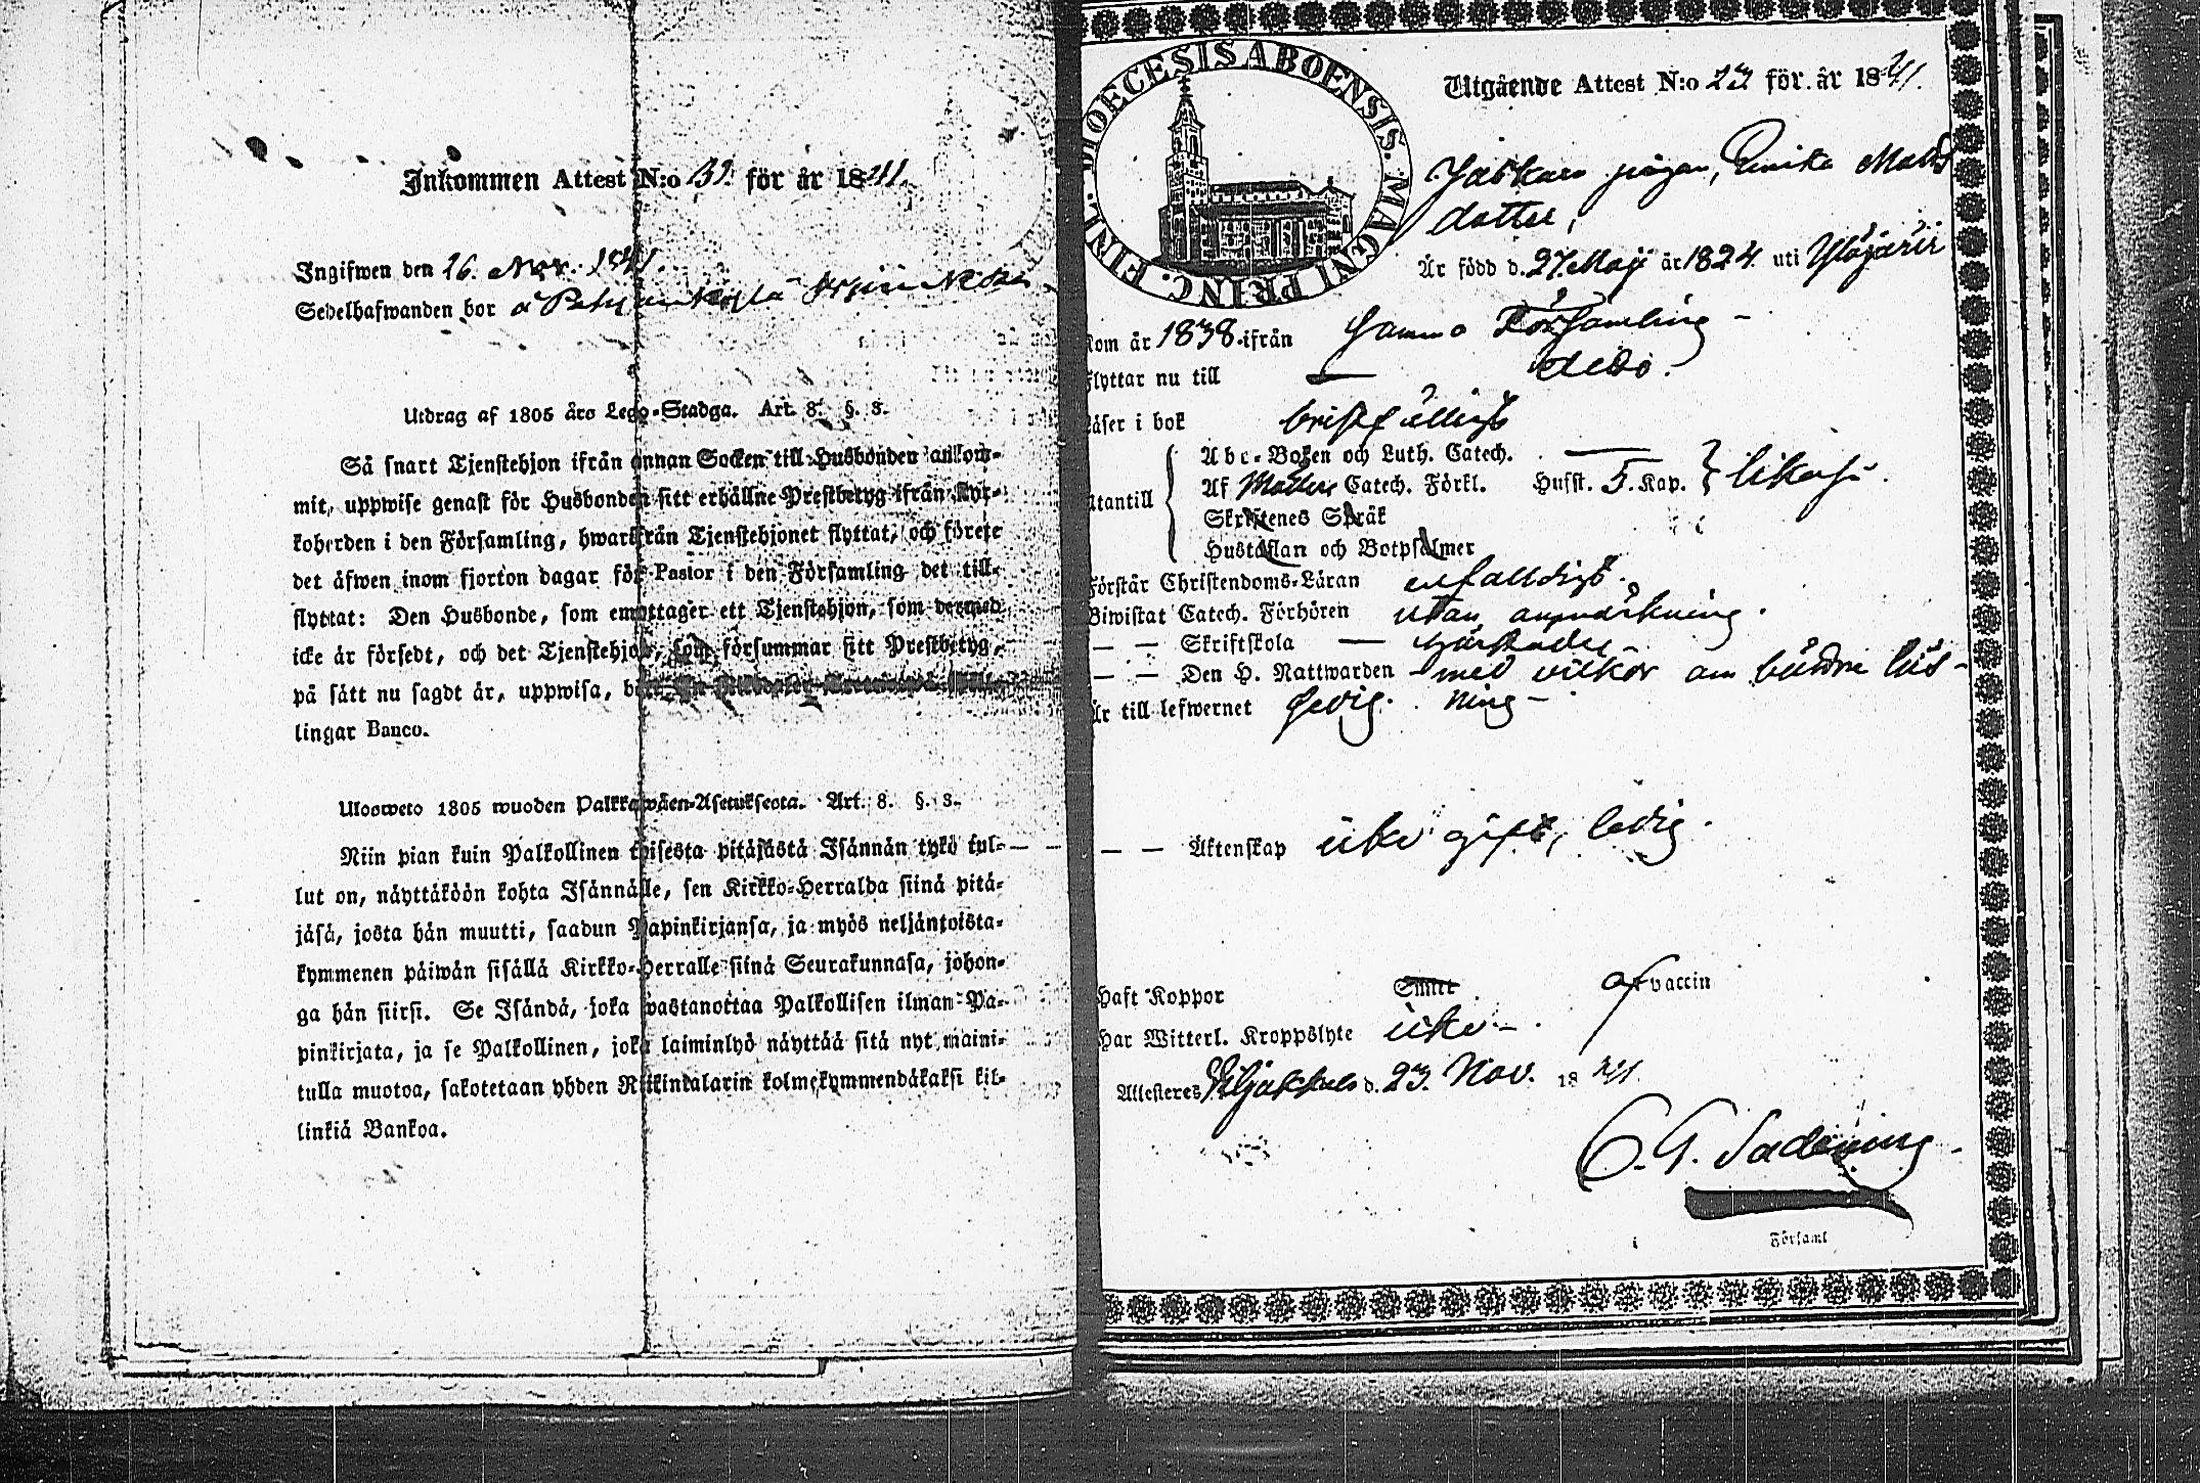 Inkommen Attest N:o 32. för år 1841.
Ingifwen den 26. Nov. 1841.
Sedelhafwanden bor å
Utdrag af 1805 års Lego-Stadga. Art. 8. §. 3.
Så snart Tjenstehjon ifrån annan Socken till Husbonden ankom-
mit, uppwise genast för Husbonden sitt erhållne Prestbetyg ifrån Kyr-
koherden i den Församling, hwarifrån Tjenstehjonet flyttat, och förete
det äfwen inom fjorton dagar för Pastor i den Församling det till-
flyttat: Den Husbonde, som emottager ett Tjenstehjon, som dermed
icke är försedt, och det Tjenstehjon, som försummar sitt Prestbetyg,
på sätt nu sagdt är, uppwisa,
lingar Banco.
Ulosweto 1805 wuoden Palkkawäen-Asetuksesta. Art. 8. §. 3.
Niin pian kuin Palkollinen toisesta pitäjästä Isännän tykö tul-
lut on, näyttäköön kohta Isännälle, sen Kirkko-Herralda siinä pitä-
jäsä, josta hän muutti, saadun Papinkirjansa, ja myös neljäntoista-
kymmenen päiwän sisällä Kirkko-Herralle siinä Seurakunnasa, johon-
ga hän siirsi. Se Isändä, joka wastanottaa Palkollisen ilman Pa-
pinkirjata, ja se Palkollinen, joka laiminlyö näyttää sitä nyt maini-
tulla muotoa, sakotetaan yhden Riikintalarin kolmekymmendäkaksi kil-
linkiä Bankoa.
DIOECESIS ABOENSIS. MAGNI PRINC. FINL.
Utgående Attest N:o 23 för år 1841.
pigan, Matts
dotter,
Är född d. 27. Maji år 1824 uti Ylöjärvi
Kom år 1838 ifrån samma Församling
Flyttar nu till
Läser i bok bristfälligt
Abc-Boken och Luth. Catech.
Af Catech. Förkl. Husst. 5. Kap. likaså.
Utantill
Skriftenes Språk
Hustaflan och Botpsalmer
Förstår Christendoms-Läran enfaldigt.
Biwistat Catech. Förhören utan anmärkning.
— — Skriftskola —
— — Den H. Nattwarden med vilkor om bättre läs-
Är till lefwernet ning
— — Äktenskap icke gift, ledig.
Haft Koppor af vaccin
Har Witterl. Kroppslyte icke
Attesteres Viljakkala d. 23. Nov. 1841.
Församl